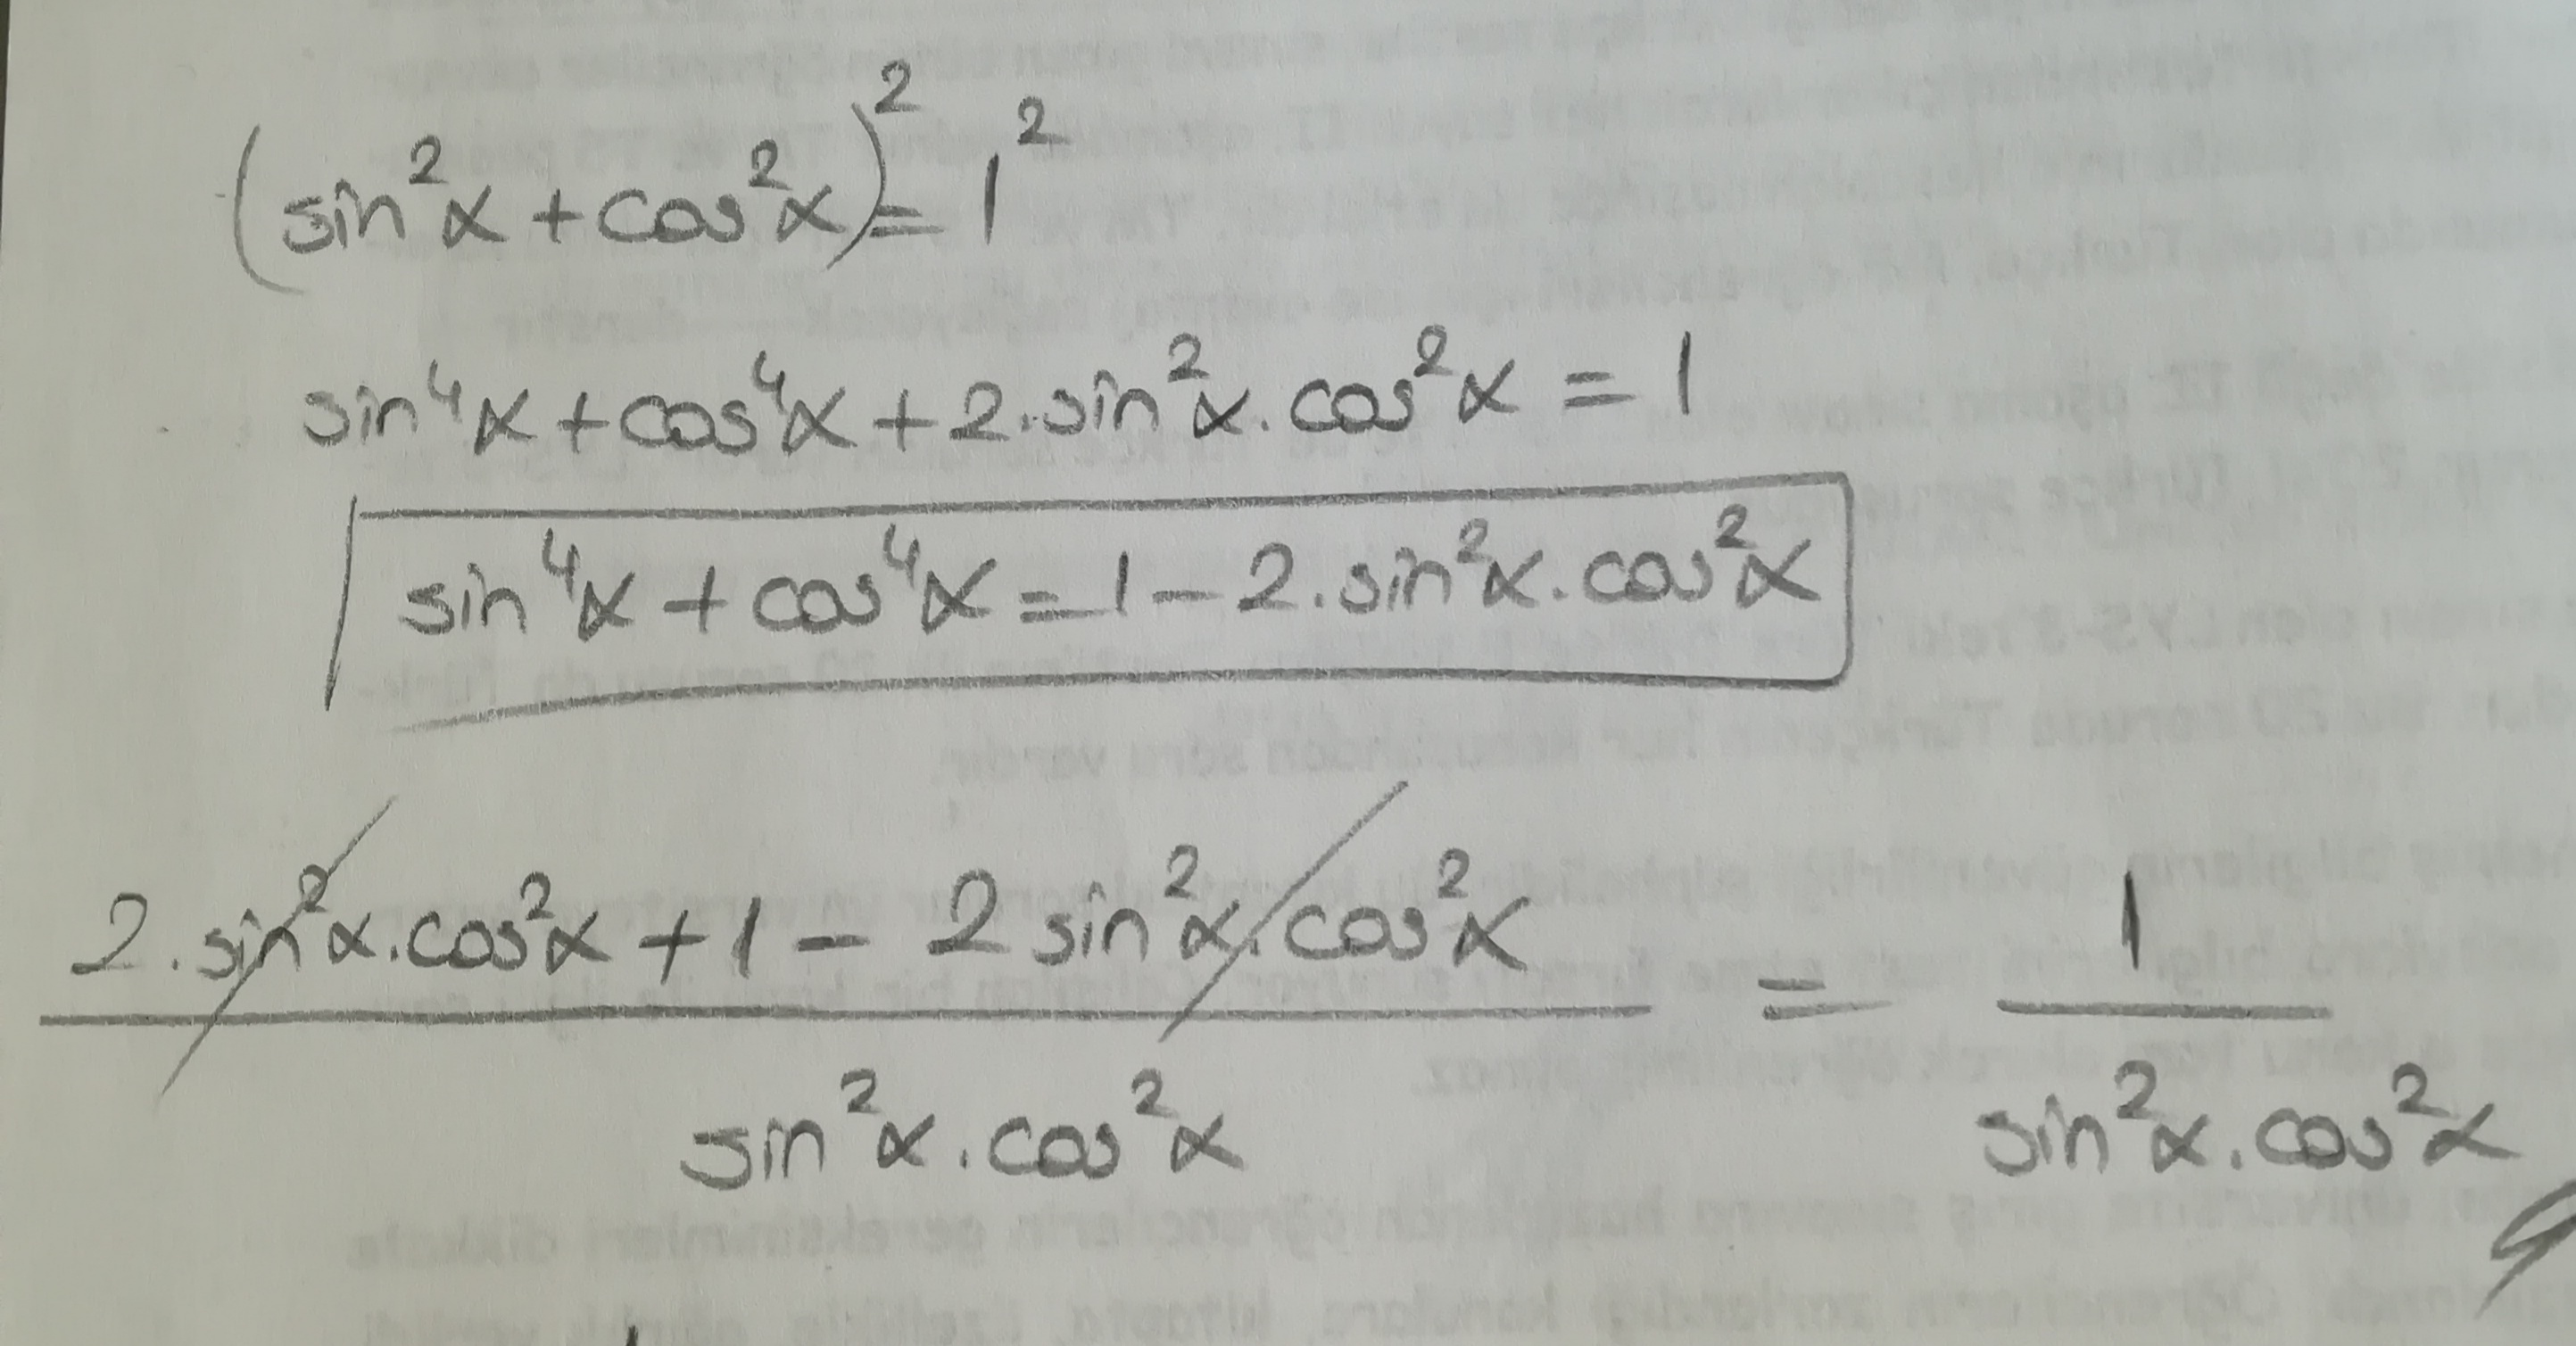 (sin²α + cos²α)² = 1²
sin⁴α + cos⁴α + 2.sin²α.cos²α = 1
sin⁴α + cos⁴α = 1 - 2.sin²α.cos²α
2.sin²α.cos²α + 1 - 2 sin²α.cos²α / sin²α.cos²α = 1 / sin²α.cos²α